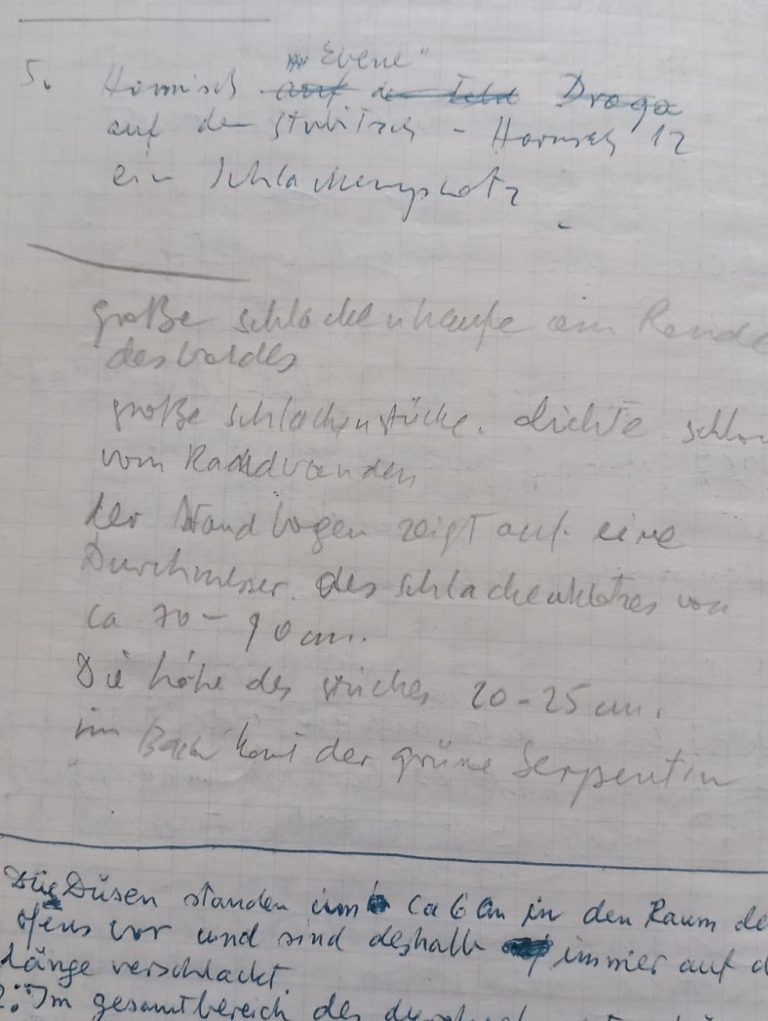 "Ebene"
5. Hornisch auf dem Feld Droga
auf der Stubitsch - Hornisch 12
ein Schlackenplatz
große schlackenhaufe am Rande
des Waldes
große schlackenstücke. dichte schla
vom
der Randbogen zeigt auf eine
Durchmesser des schlackenklotzes von
ca 70 - 90 cm.
Die höhe des stückes 20 - 25 cm.
im Bach komt der grüne Serpentin
Die Düsen standen ca 6 cm in den Raum de
ofens vor und sind deshalb immer auf d
länge verschlackt.
2. Im gesamtbereich des